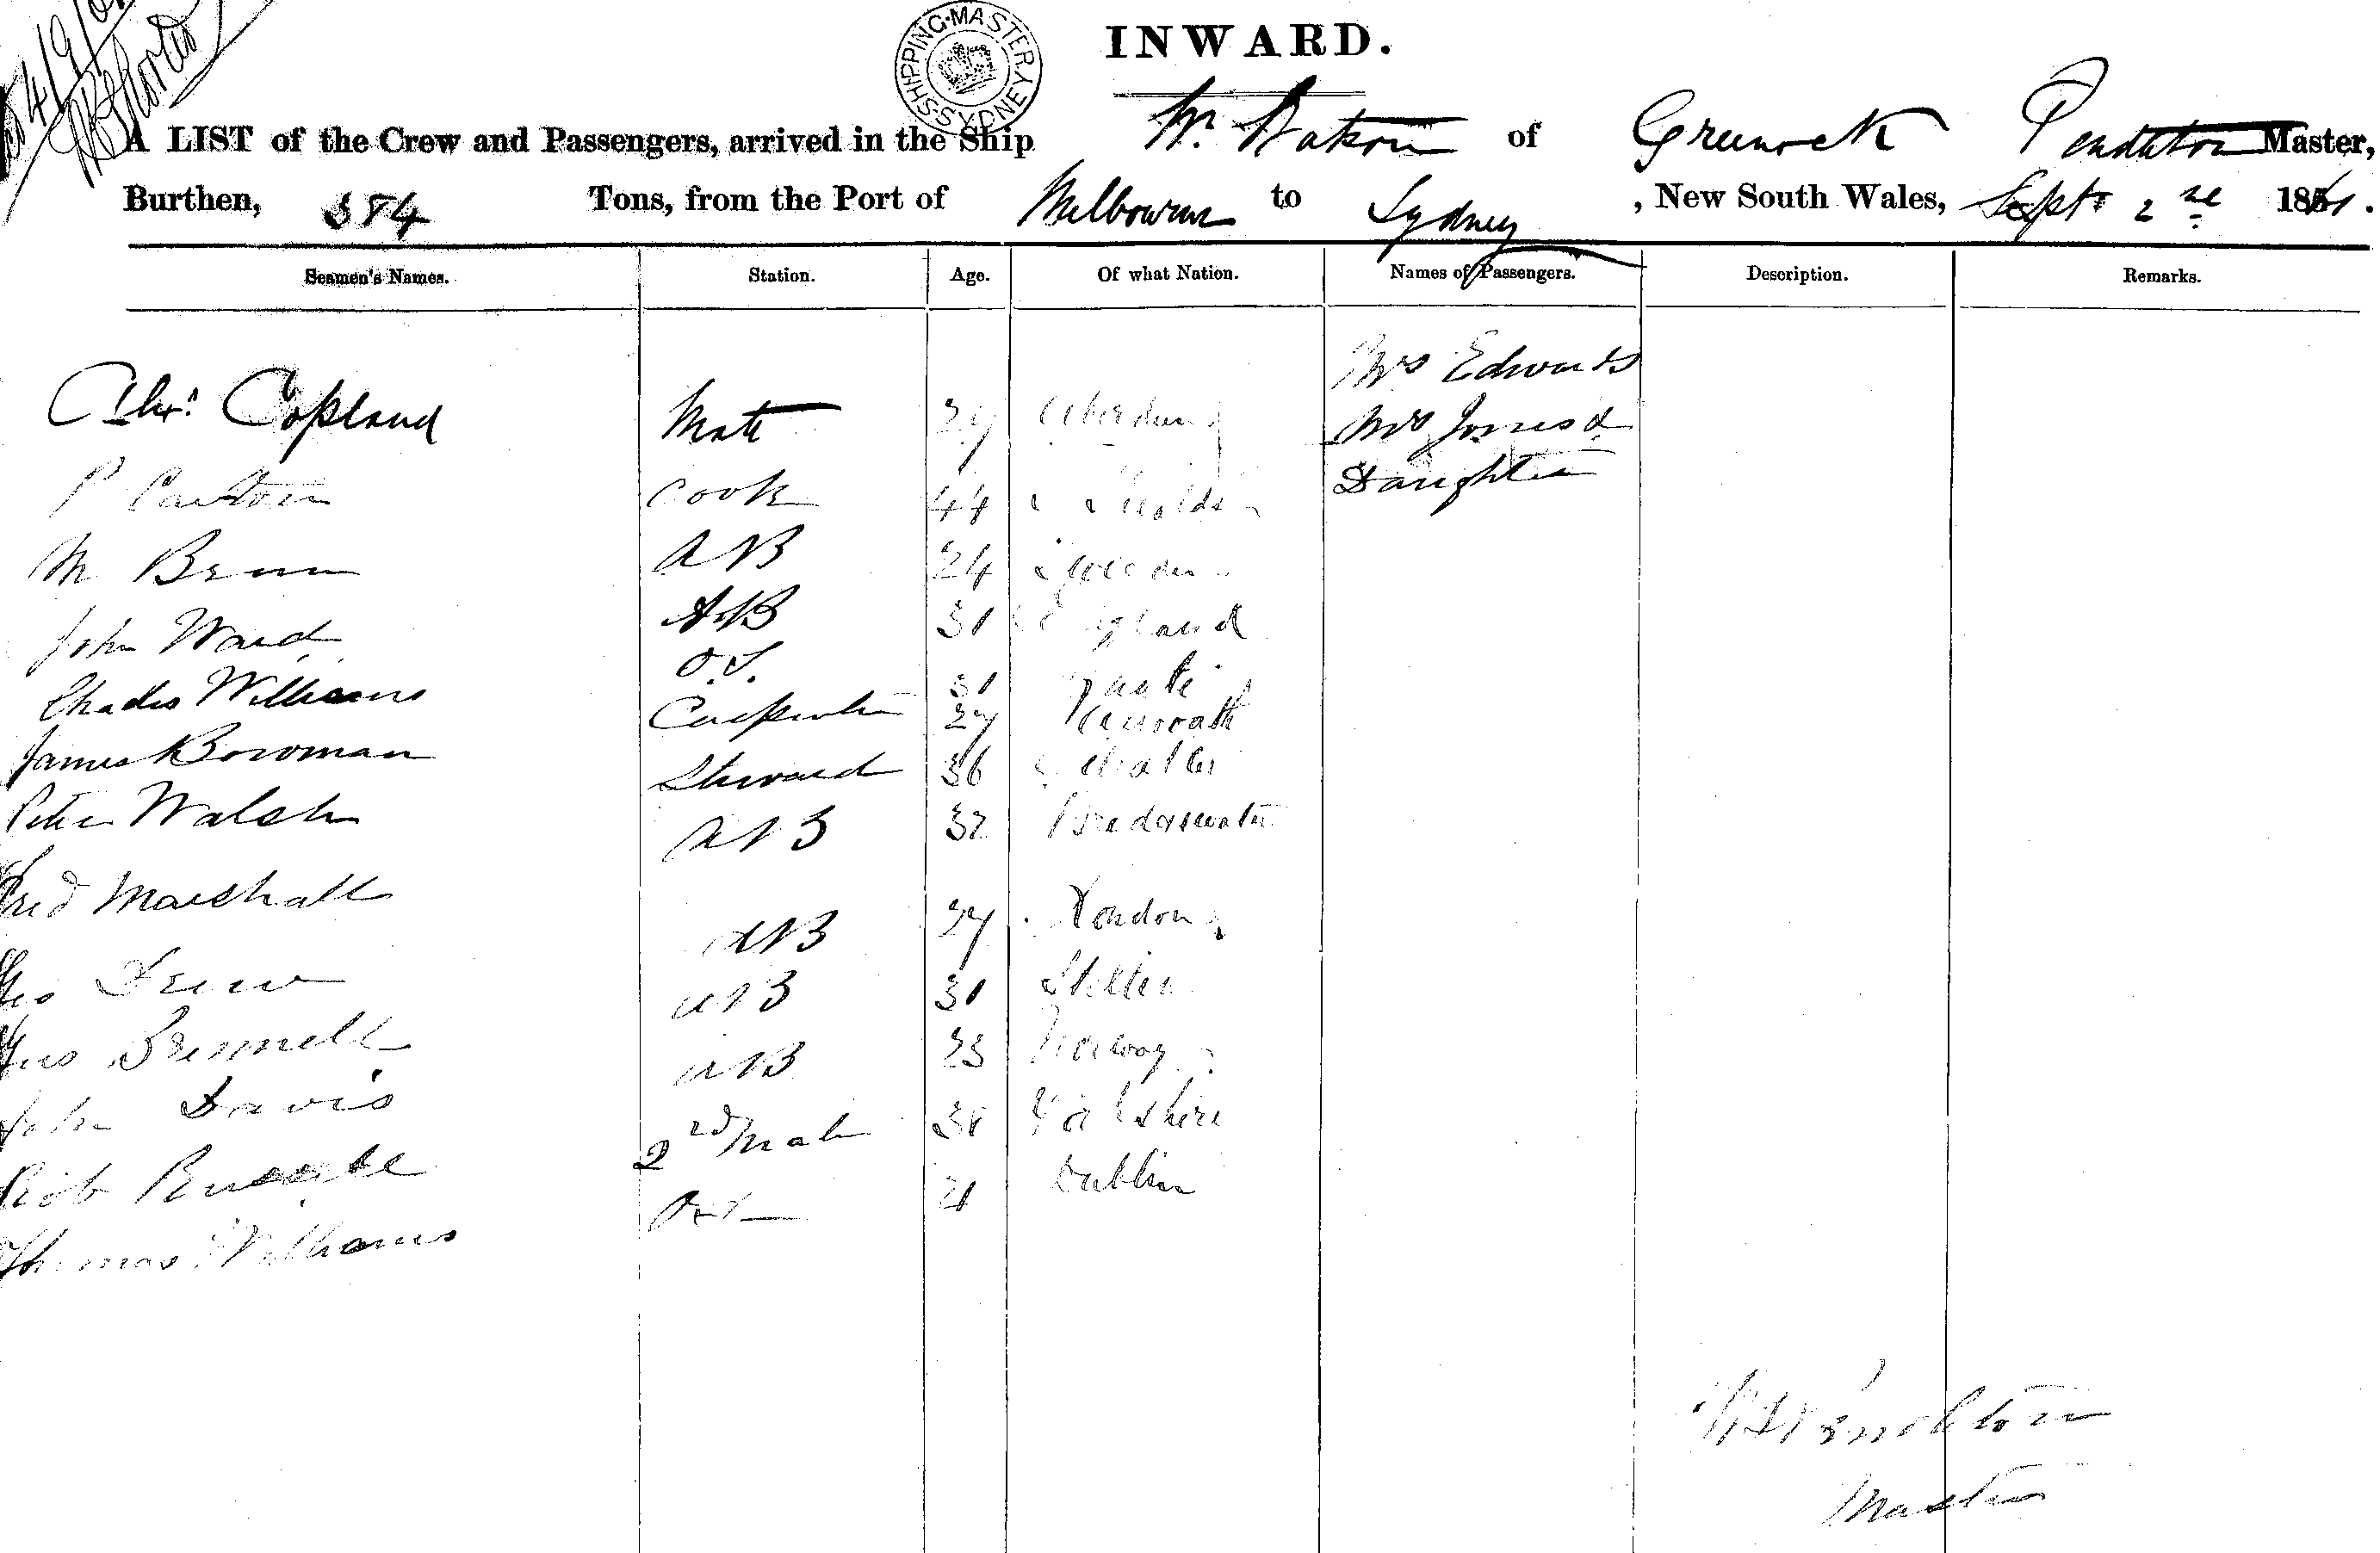 INWARD.
SHIPPING MASTER SYDNEY
A LIST of the Crew and Passengers, arrived in the Ship Wm. Watson of Greenock Pendleton Master,
Burthen, 384 Tons, from the Port of Melbourne to Sydney, New South Wales, Sept 2nd 1861.
Seamen's Names. Station. Age. Of what Nation. Names of Passengers. Description. Remarks.
Mrs Edwards
Alexr. Copland Mate 29 Aberdeen Mrs Jones &
Daughter
P Cook 44
M AB 24 Sweden
John Ward AB 31 England
Charles Williams O.S. 31
James Bowman Carpenter 27
Peter Walsh Steward 36
AB 32 Bridgewater
Fred Marshall AB 29 London
Geo AB 31 Stettin
AB 23 Norway
John Davis 2nd Mate 38 Yorkshire
Rob Russell O.S. 21 Dublin
Thomas Williams
Pendleton
Master